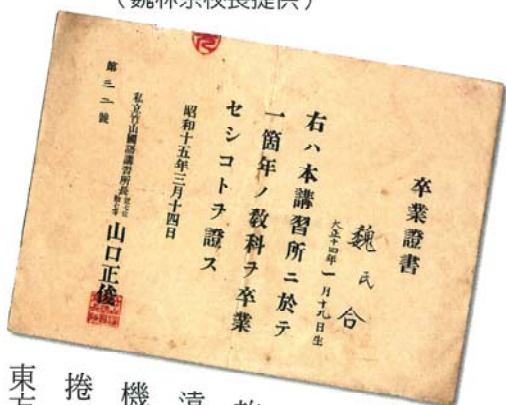 （魏林宗校長提供）
卒業證書
魏氏合
大正十四年一月十九日生
右ハ本講習所ニ於テ
一箇年ノ教科ヲ卒業
セシコトヲ證ス
昭和十五年三月十四日
私立竹山國語講習所長 山口正俊
第三二號
遠
機
捲
東